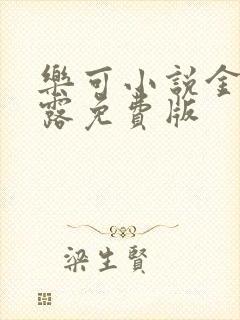 樂可小說金
露免費版
梁生賢